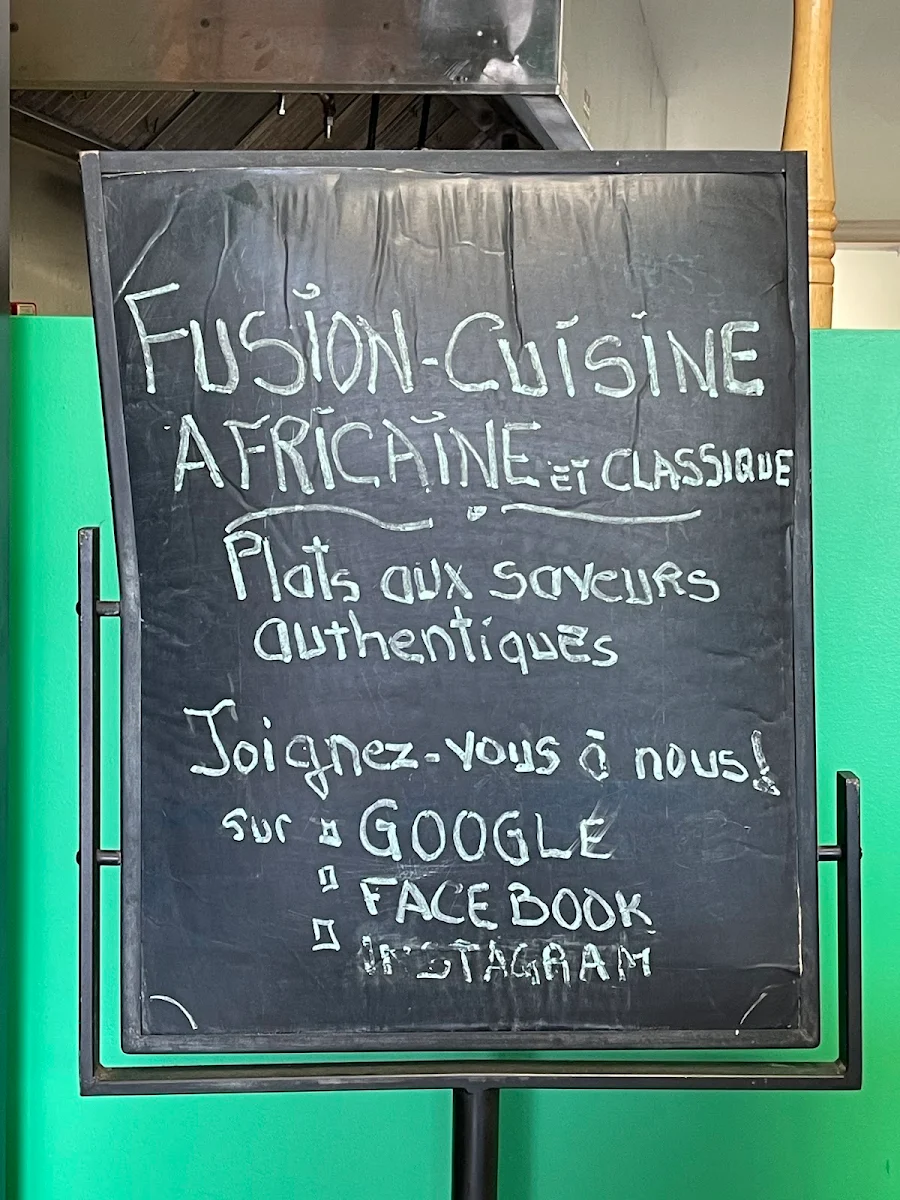 FUSION-CUISINE
AFRICAINE ET CLASSIQUE
Plats aux saveurs
authentiques
Joignez-vous à nous!
sur GOOGLE
FACEBOOK
INSTAGRAM